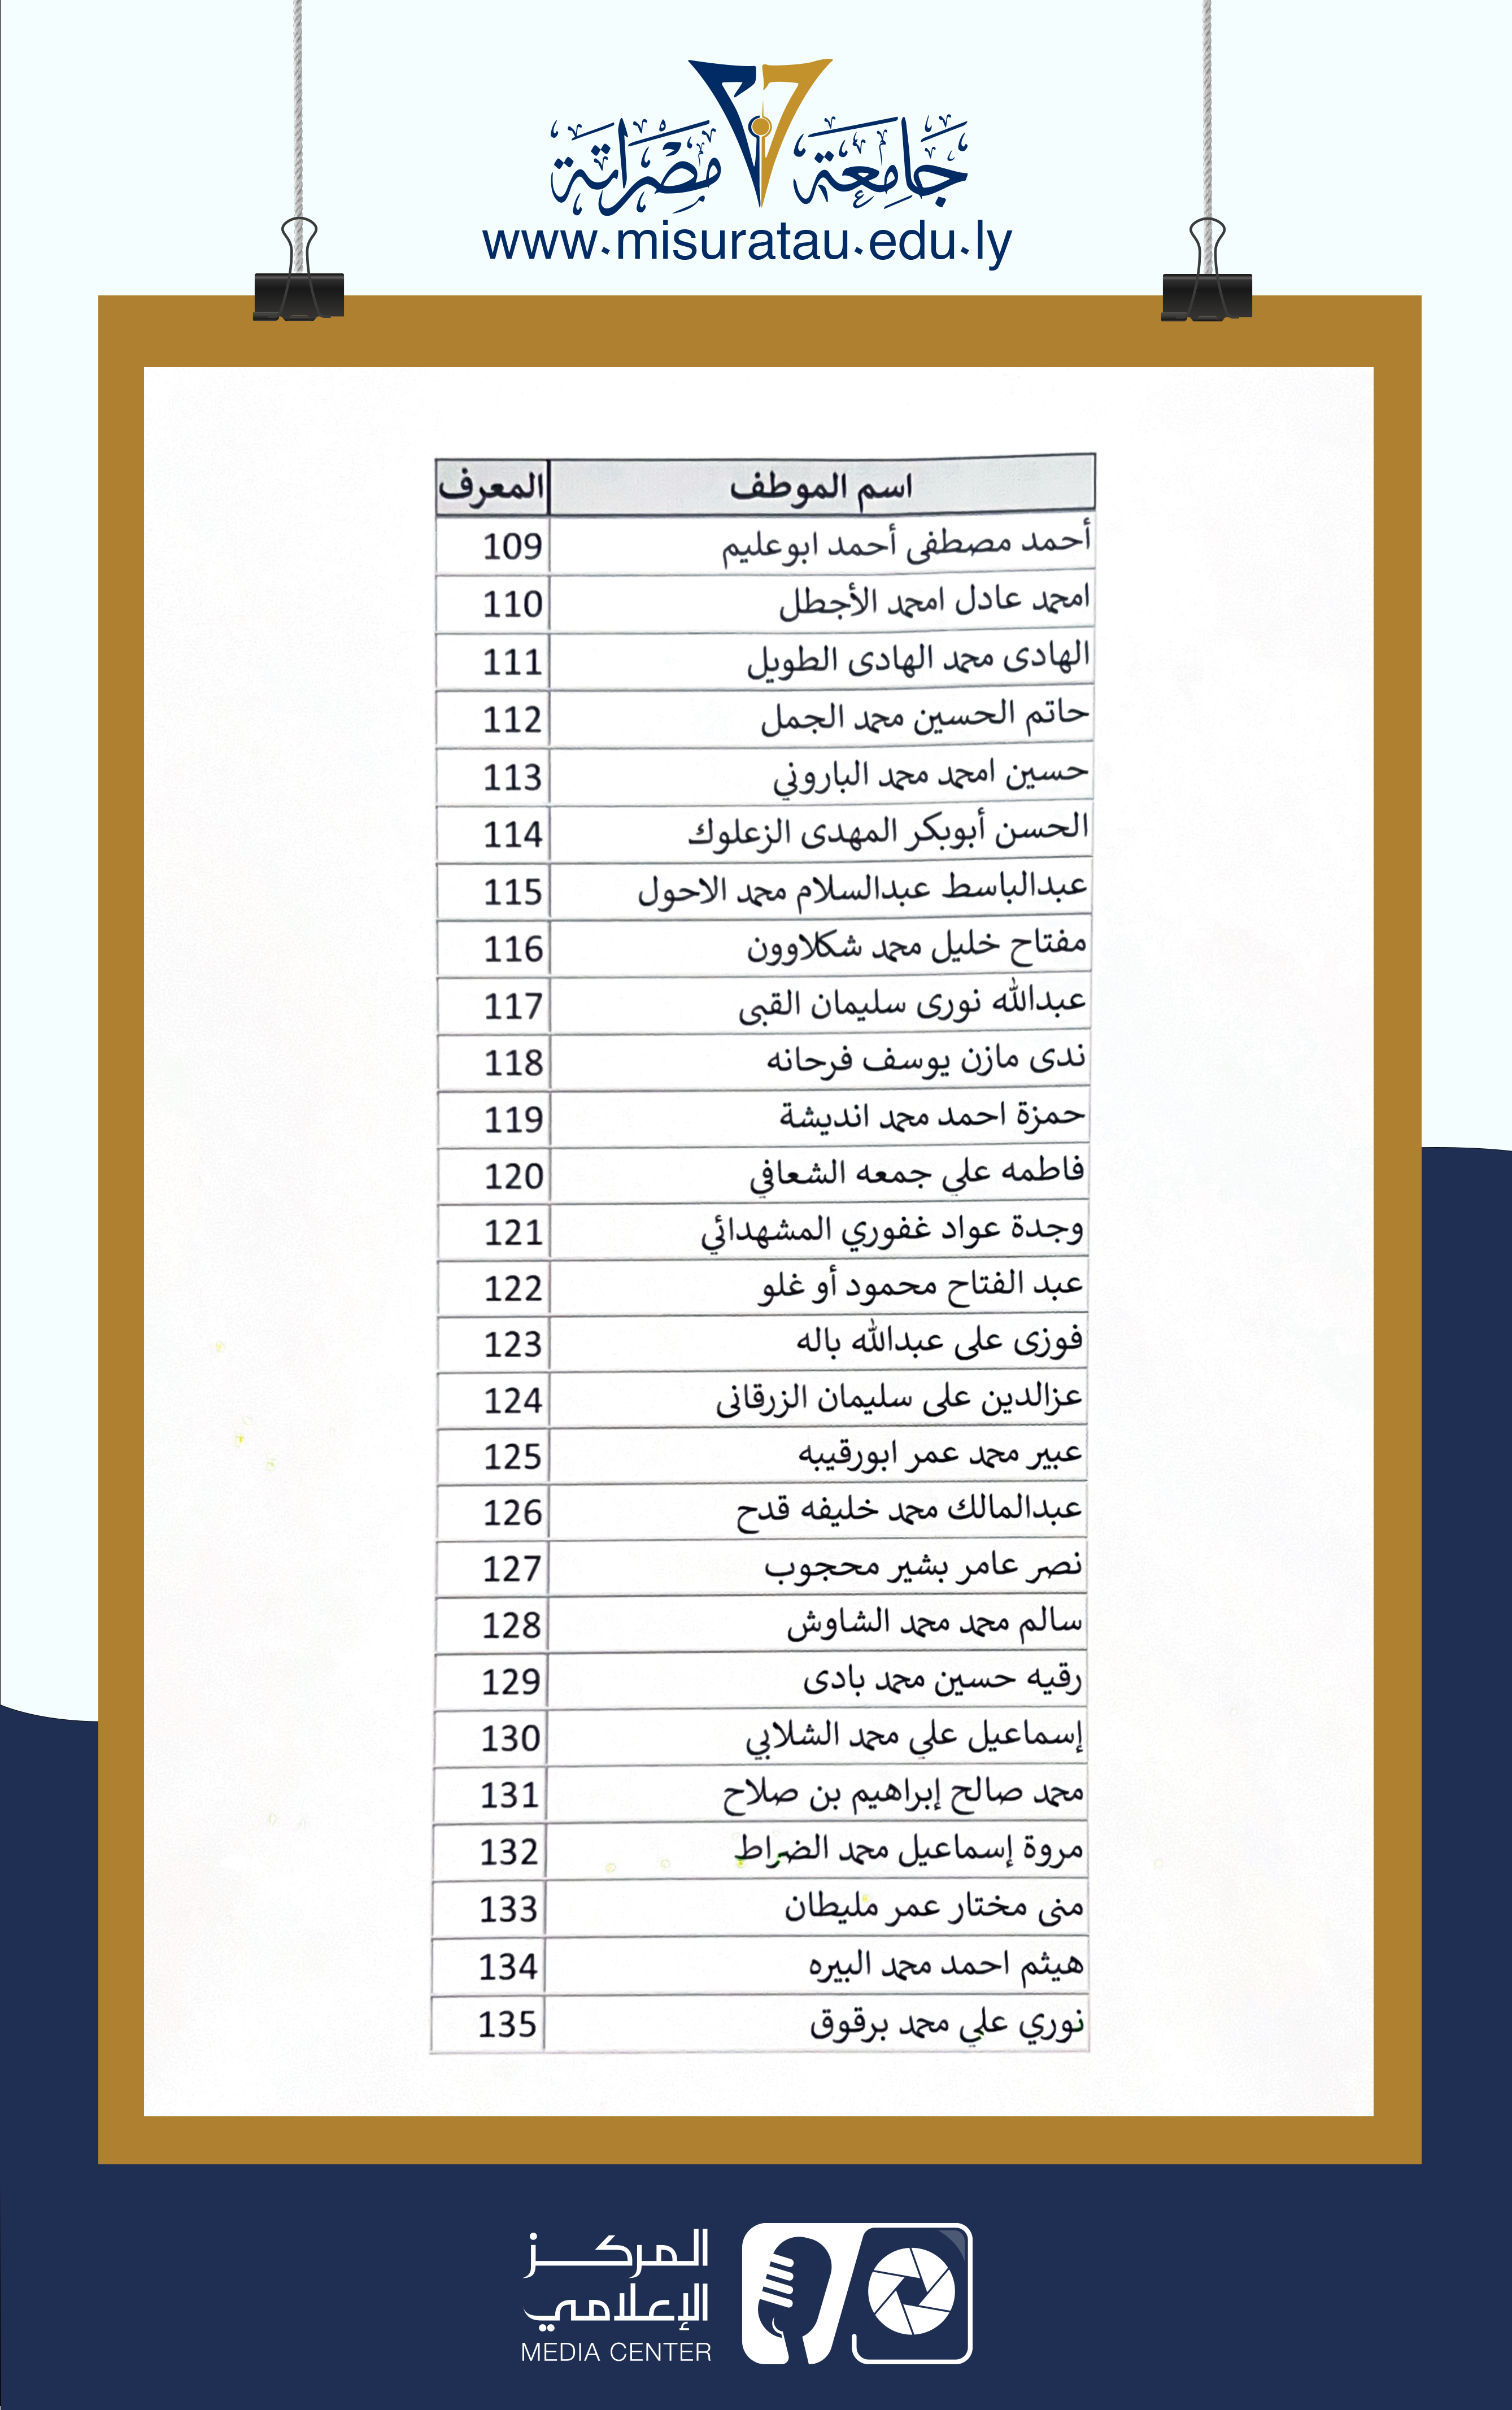 جامعة مصراتة
www.misuratau.edu.ly
اسم الموظف المعرف
أحمد مصطفى أحمد ابوعليم 109
امحمد عادل امحمد الأجطل 110
الهادى محمد الهادى الطويل 111
حاتم الحسين محمد الجمل 112
حسين امحمد محمد الباروني 113
الحسن أبوبكر المهدى الزعلوك 114
عبدالباسط عبدالسلام محمد الاحول 115
مفتاح خليل محمد شكلاوون 116
عبدالله نورى سليمان القبى 117
ندى مازن يوسف فرحانه 118
حمزة احمد محمد انديشة 119
فاطمه علي جمعه الشعافي 120
وجدة عواد غفوري المشهدائي 121
عبد الفتاح محمود أو غلو 122
فوزى على عبدالله باله 123
عزالدين على سليمان الزرقانى 124
عبير محمد عمر ابورقيبه 125
عبدالمالك محمد خليفه قدح 126
نصر عامر بشير محجوب 127
سالم محمد محمد الشاوش 128
رقيه حسين محمد بادى 129
إسماعيل علي محمد الشلابي 130
محمد صالح إبراهيم بن صلاح 131
مروة إسماعيل محمد الضراط 132
منى مختار عمر مليطان 133
هيثم احمد محمد البيره 134
نوري علي محمد برقوق 135
المركز
الإعلامي
MEDIA CENTER